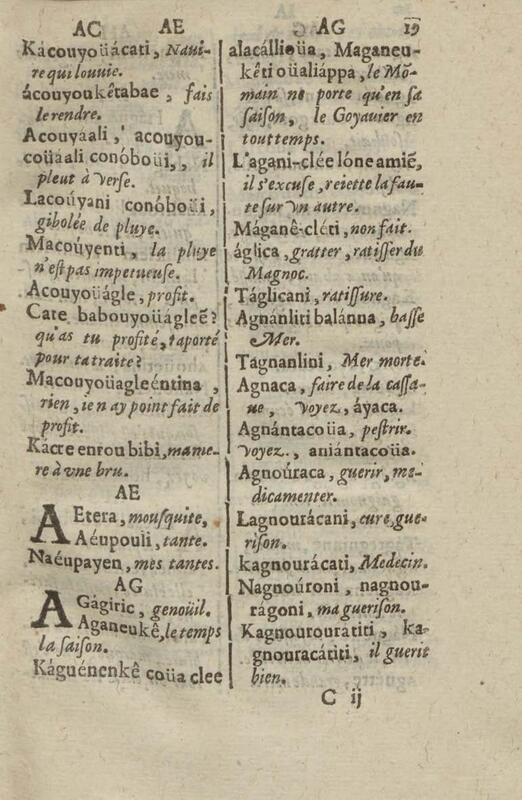 AC AE AG 19
Kàcouyoüácati, Navi-
re qui louuie.
ácouyoukêtabae, fais
le rendre.
Acouyáali, acouyou-
coüáali conóboüi,, il
pleut à verse.
Lacoúyani conóboüi,
gibolée de pluye.
Macoúyenti, la pluye
n'est pas impetueuse.
Acouyoüágle, profit.
Cate babouyoüágleẽ?
qu'as tu profité, t'aporté
pour ta traite?
Macouyoüagleéntina,
rien, ie n'ay point fait de
profit.
Kácre enrou bibi, mame-
re à vne bru.
AE
AEtera, mousquite,
Aéupouli, tante.
Naéupayen, mes tantes.
AG
AGágiric, genoüil.
Aganeukê, le temps
la saison.
Káguénenkê coüa clee
alacállioüa, Maganeu-
kêti oüaliáppa, le Mõ-
main ne porte qu'en sa
saison, le Goyauier en
tout temps.
L'agani-clée lóne amiẽ,
il s'excuse, reiette la fau-
te sur vn autre.
Máganê-cléti, non fait.
áglica, gratter, ratisser du
Magnoc.
Táglicani, ratissure.
Agnánliti balánna, basse
Mer.
Tagnanlini, Mer morte.
Agnaca, faire de la cassa-
ue, voyez, áyaca.
Agnántacoüa, pestrir.
voyez., aniántacoüa.
Agnoúraca, guerir, me-
dicamenter.
Lagnourácani, cure, gue-
rison.
kagnourácati, Medecin.
Nagnoúroni, nagnou-
rágoni, ma guerison.
Kagnourouràtiti, ka-
gnouracátiti, il guerit
bien.
C ij